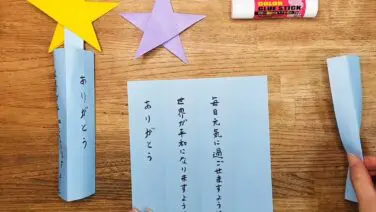 COLOR
GLUE STICK
ありがとう
毎日元気に過ごせますよう
世界が平和になりますよう
ありがとう